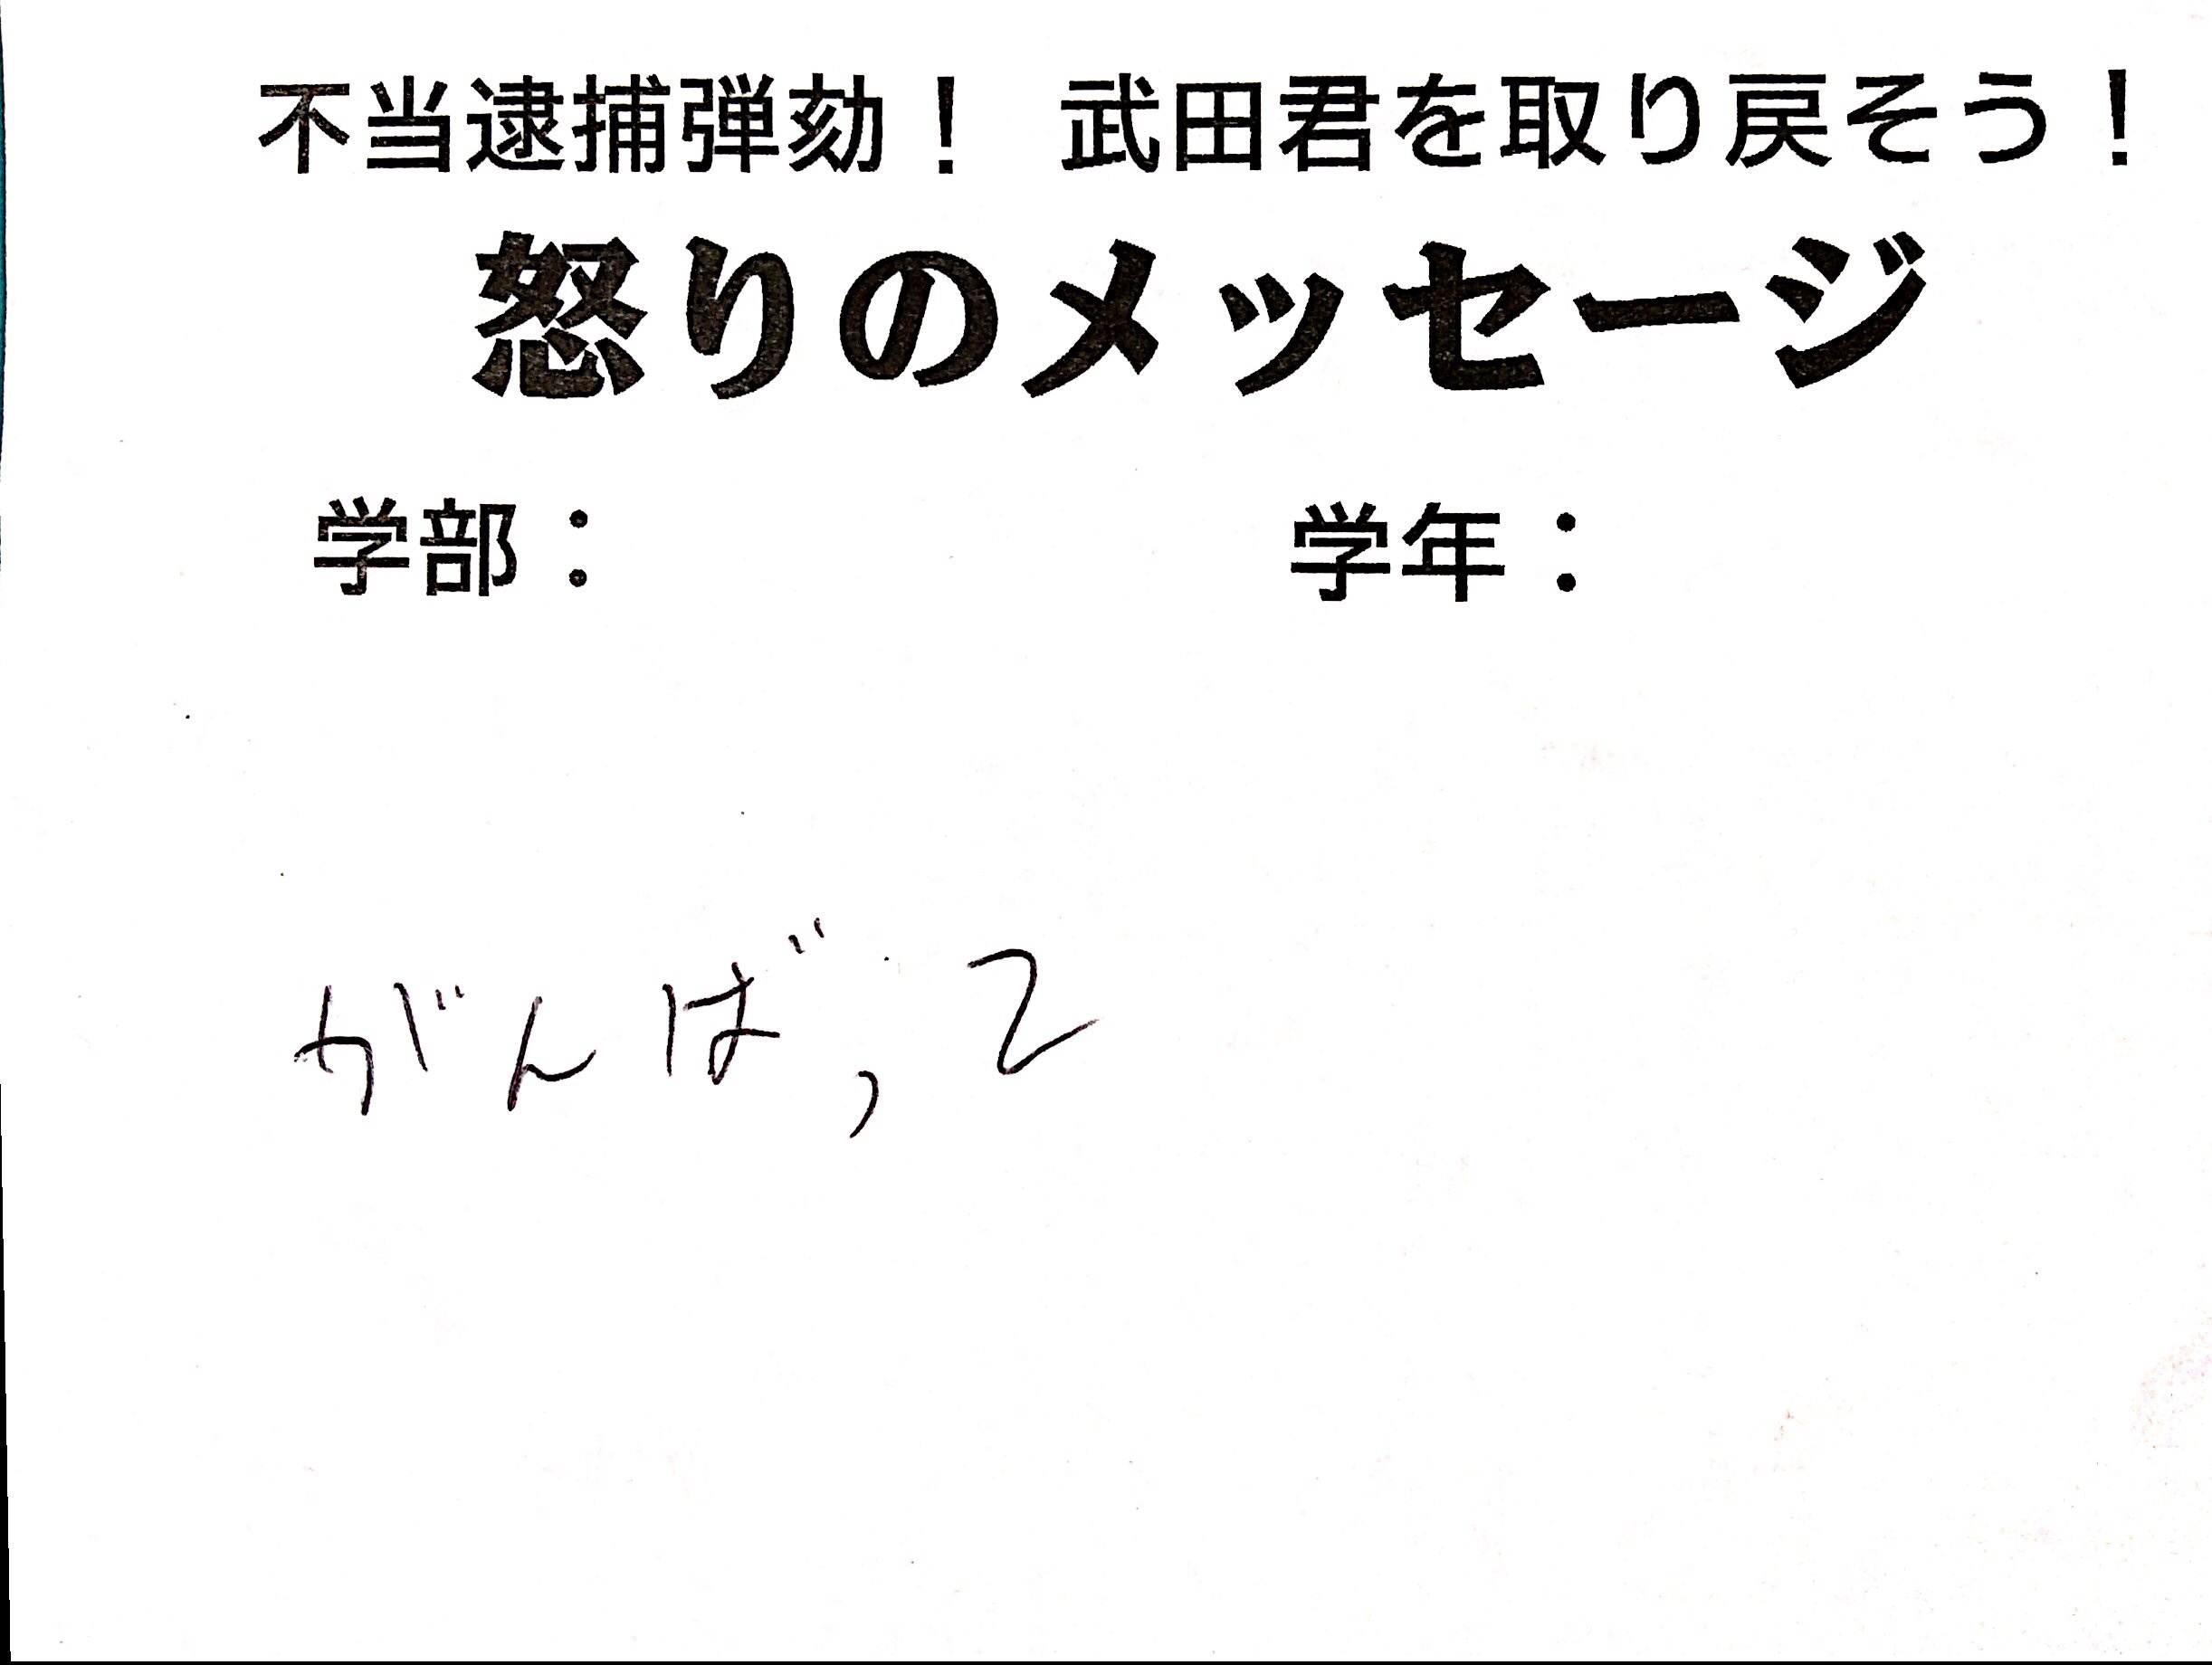 不当逮捕弾劾！　武田君を取り戻そう！
怒りのメッセージ
学部：　学年：
がんばって